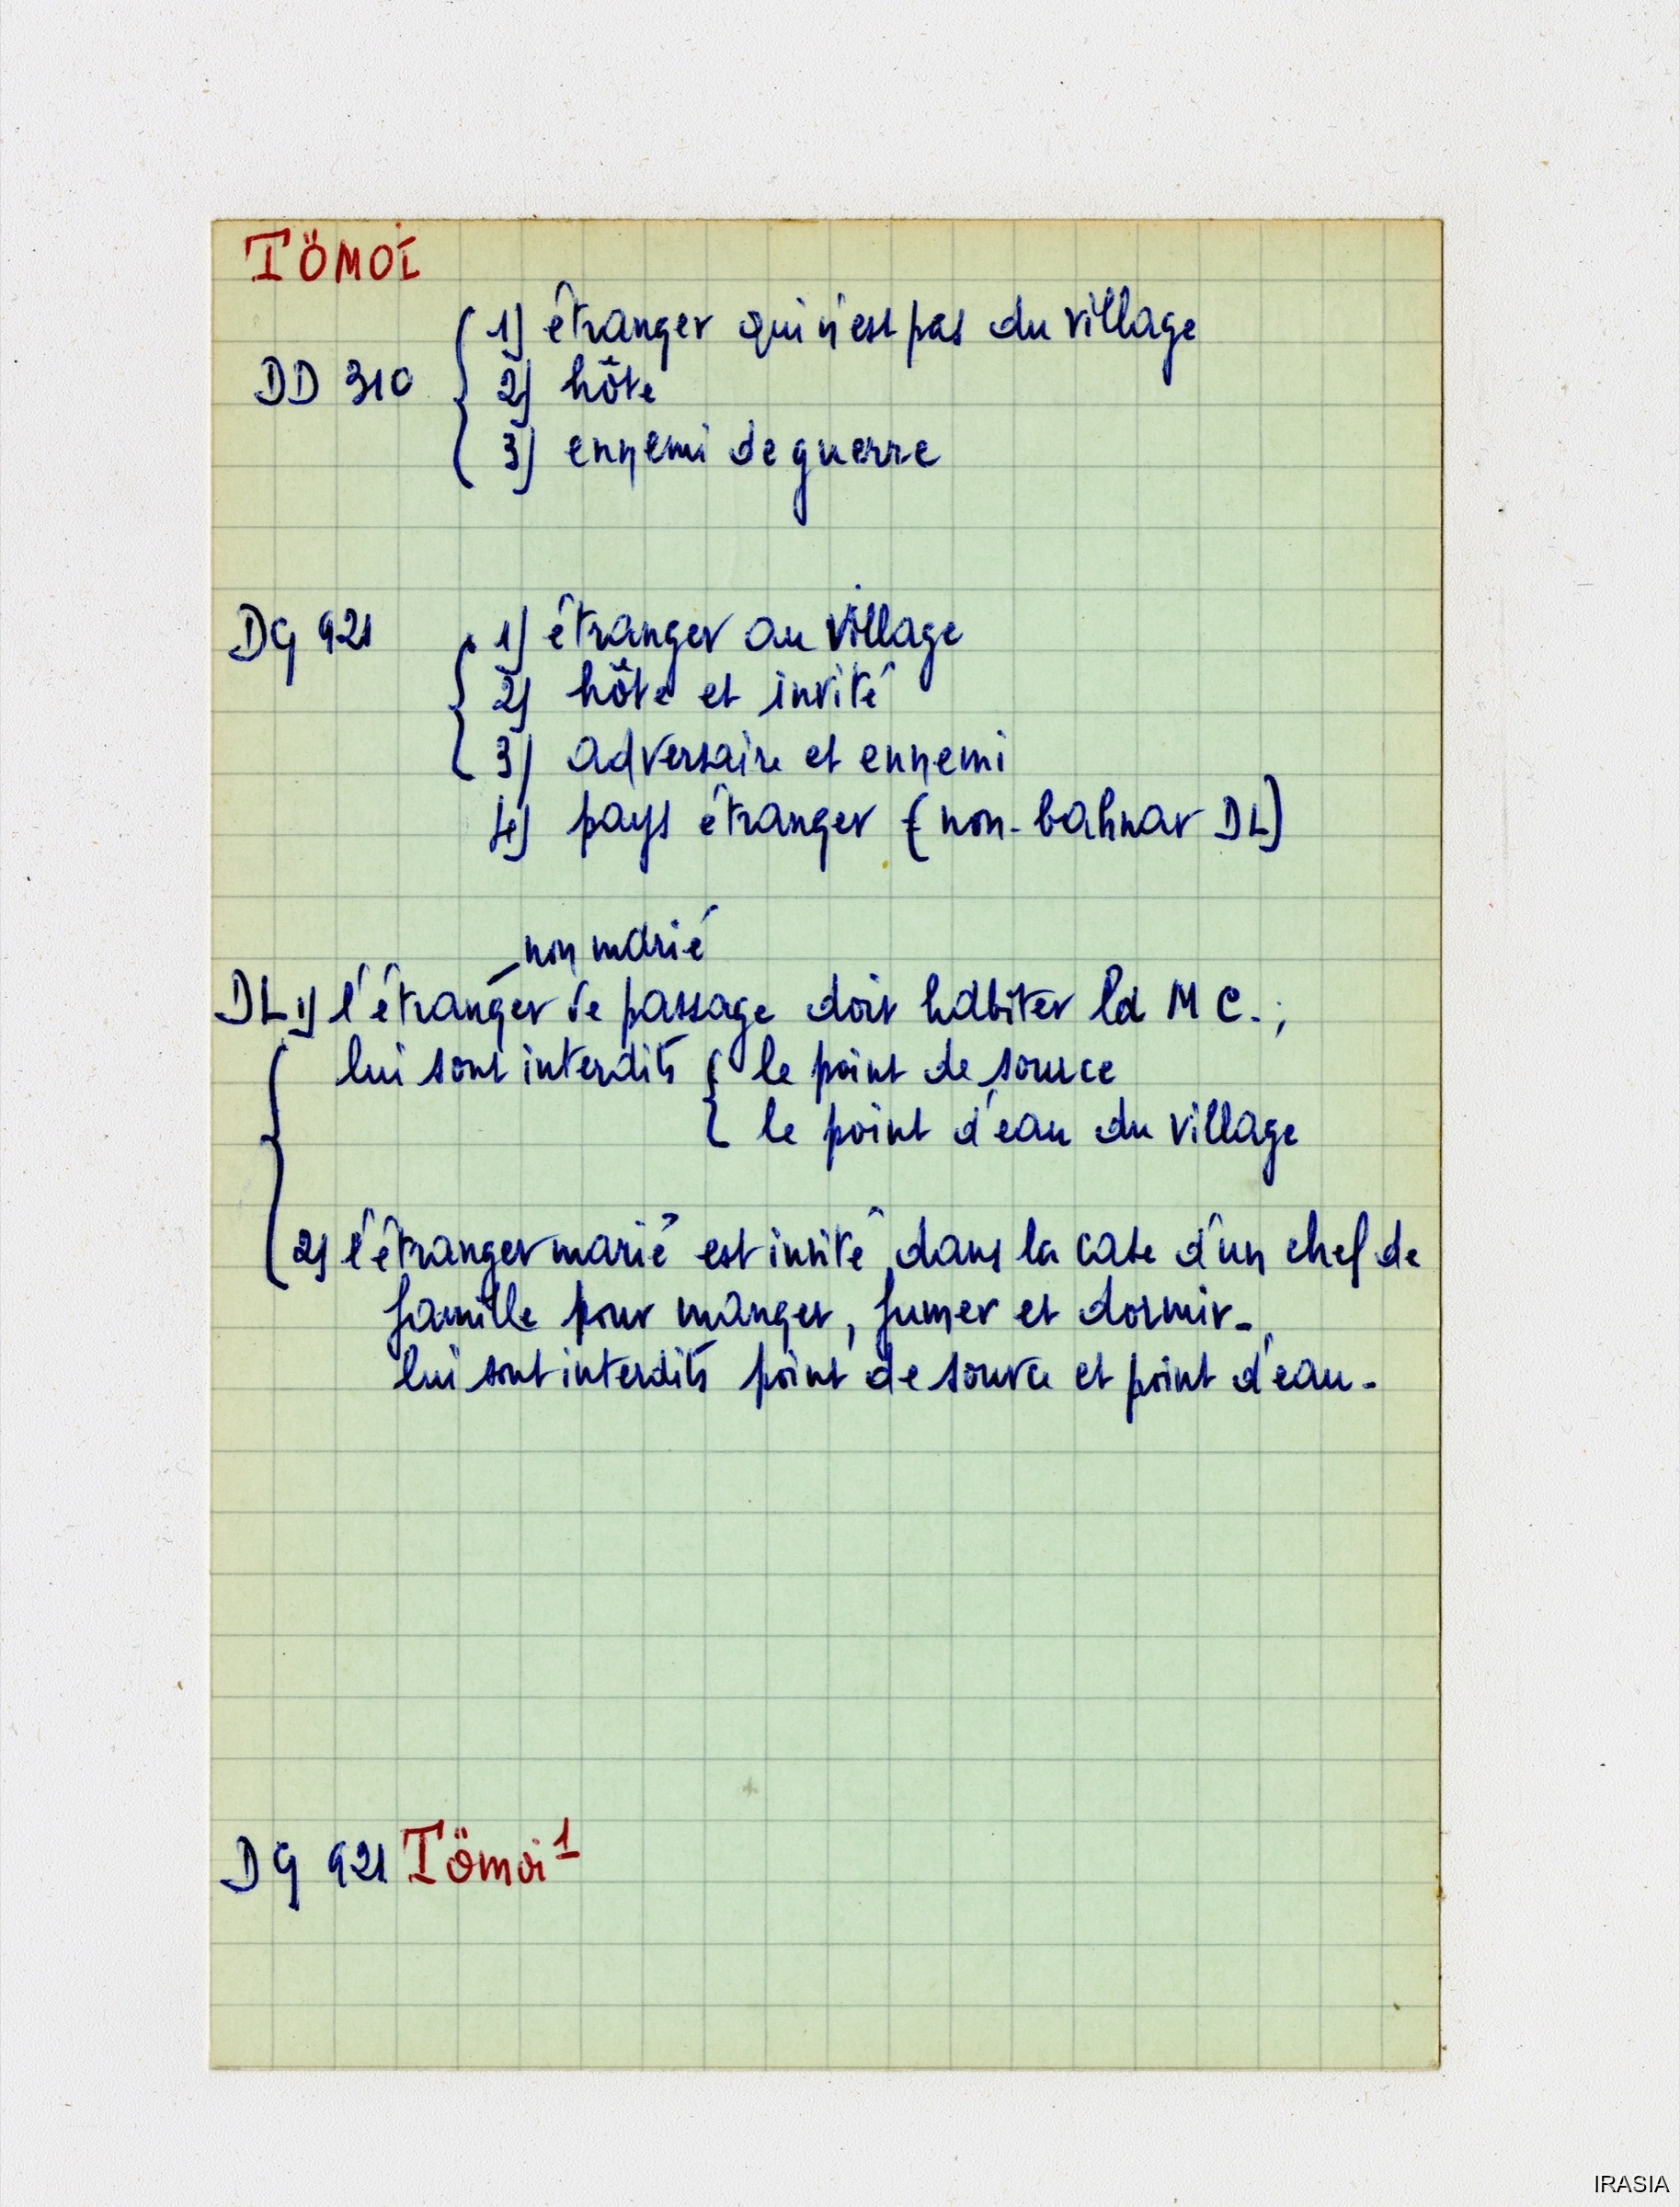 TÖMOI
1) étranger qui n'est pas du village
DD 310 2) hôte
3) ennemi de guerre
DG 921 1) étranger au village
2) hôte et invité
3) adversaire et ennemi
4) pays étranger (non-bahnar DL)
non marié
DL 1) l'étranger de passage doit habiter la MC.;
lui sont interdits { le point de source
le point d'eau du village
2) l'étranger marié est invité dans la case d'un chef de
famille pour manger, fumer et dormir-
lui sont interdits point de source et point d'eau-
DG 921 Tömoi 1
IRASIA